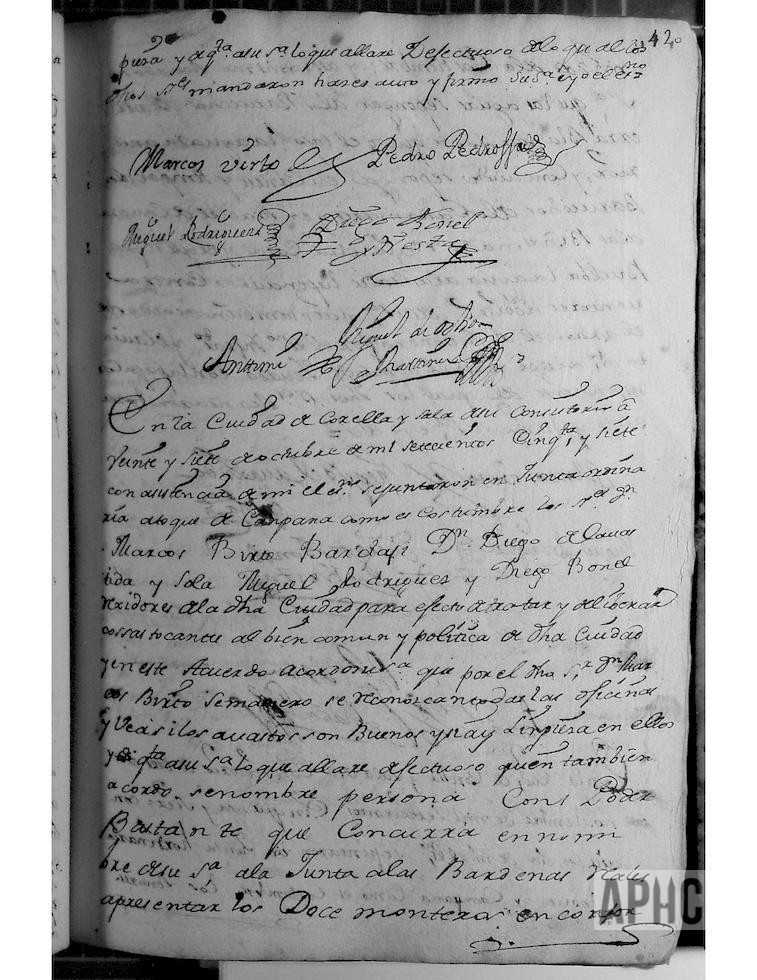 42
pieza y de qta. a su sa. lo que allare Defectuoso de lo qual los
dhos sres. mandaron hazer auto y firmo su sa. e yo el esno.
Marcos Virto Pedro Pedrossa
Miguel Rodriguez Diego Bonel
y Resta
Miguel de
Anttemi Martinez
En la Ciudad de Corella y Sala de su Consultorio a
veinte y siete de octubre de mil setecientos Cinqta. y siete
con asistencia de mi el esno. se juntaron en Junta ordina
ria a toque de Canpana como es costumbre los sres. dn.
Marcos Birto Bardaji Dn. Diego de
tida y Sola Miguel Rodriguez y Diego Bonel
rexidores de la dha Ciudad para efecto de tratar y deliberar
cossas tocante al bien comun y politica de dha Ciudad
y en este Acuerdo acordo su sa. que por el dho Sr. dn. Mar
cos Birto Semanero se reconozcan todas las oficinas
y Vea si los avastos son Buenos y si ay Linpieza en ellos
y de qta. a su sa. lo que allare defectuoso quen tambien
acordo se nombre persona Cons Poder
Bastante que Concurra en nom
bre de su sa. a la Junta a las Bardenas Reales
a presentar los Doce monteras en confor
APHC